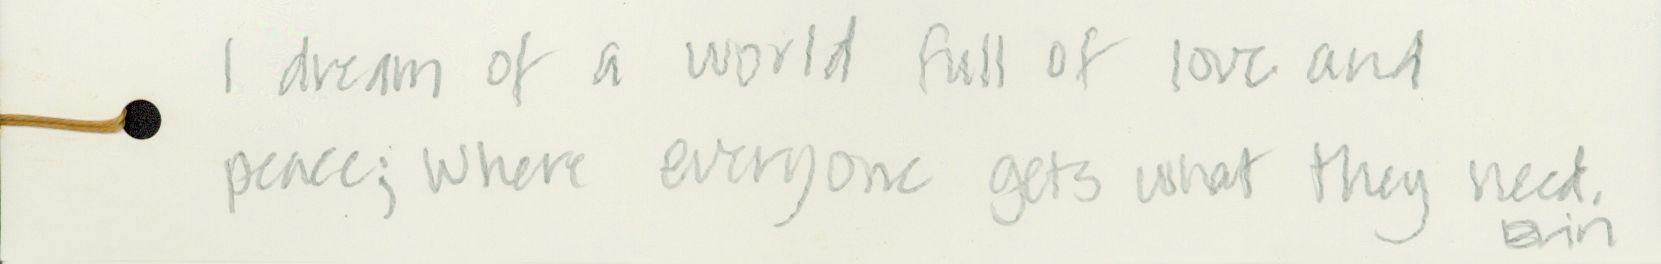 I dream of a world full of love and
peace; where everyone gets what they need.
Erin